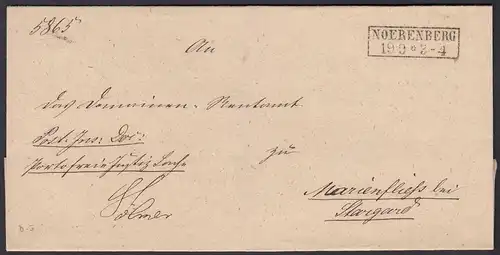 5865
NOERENBERG
19 9 * 3-4
An
Das Domainen-Rentamt
Post: Ins: Dor:
Portofreie Justiz Sache
zu
Marienfließ bei
Stargard